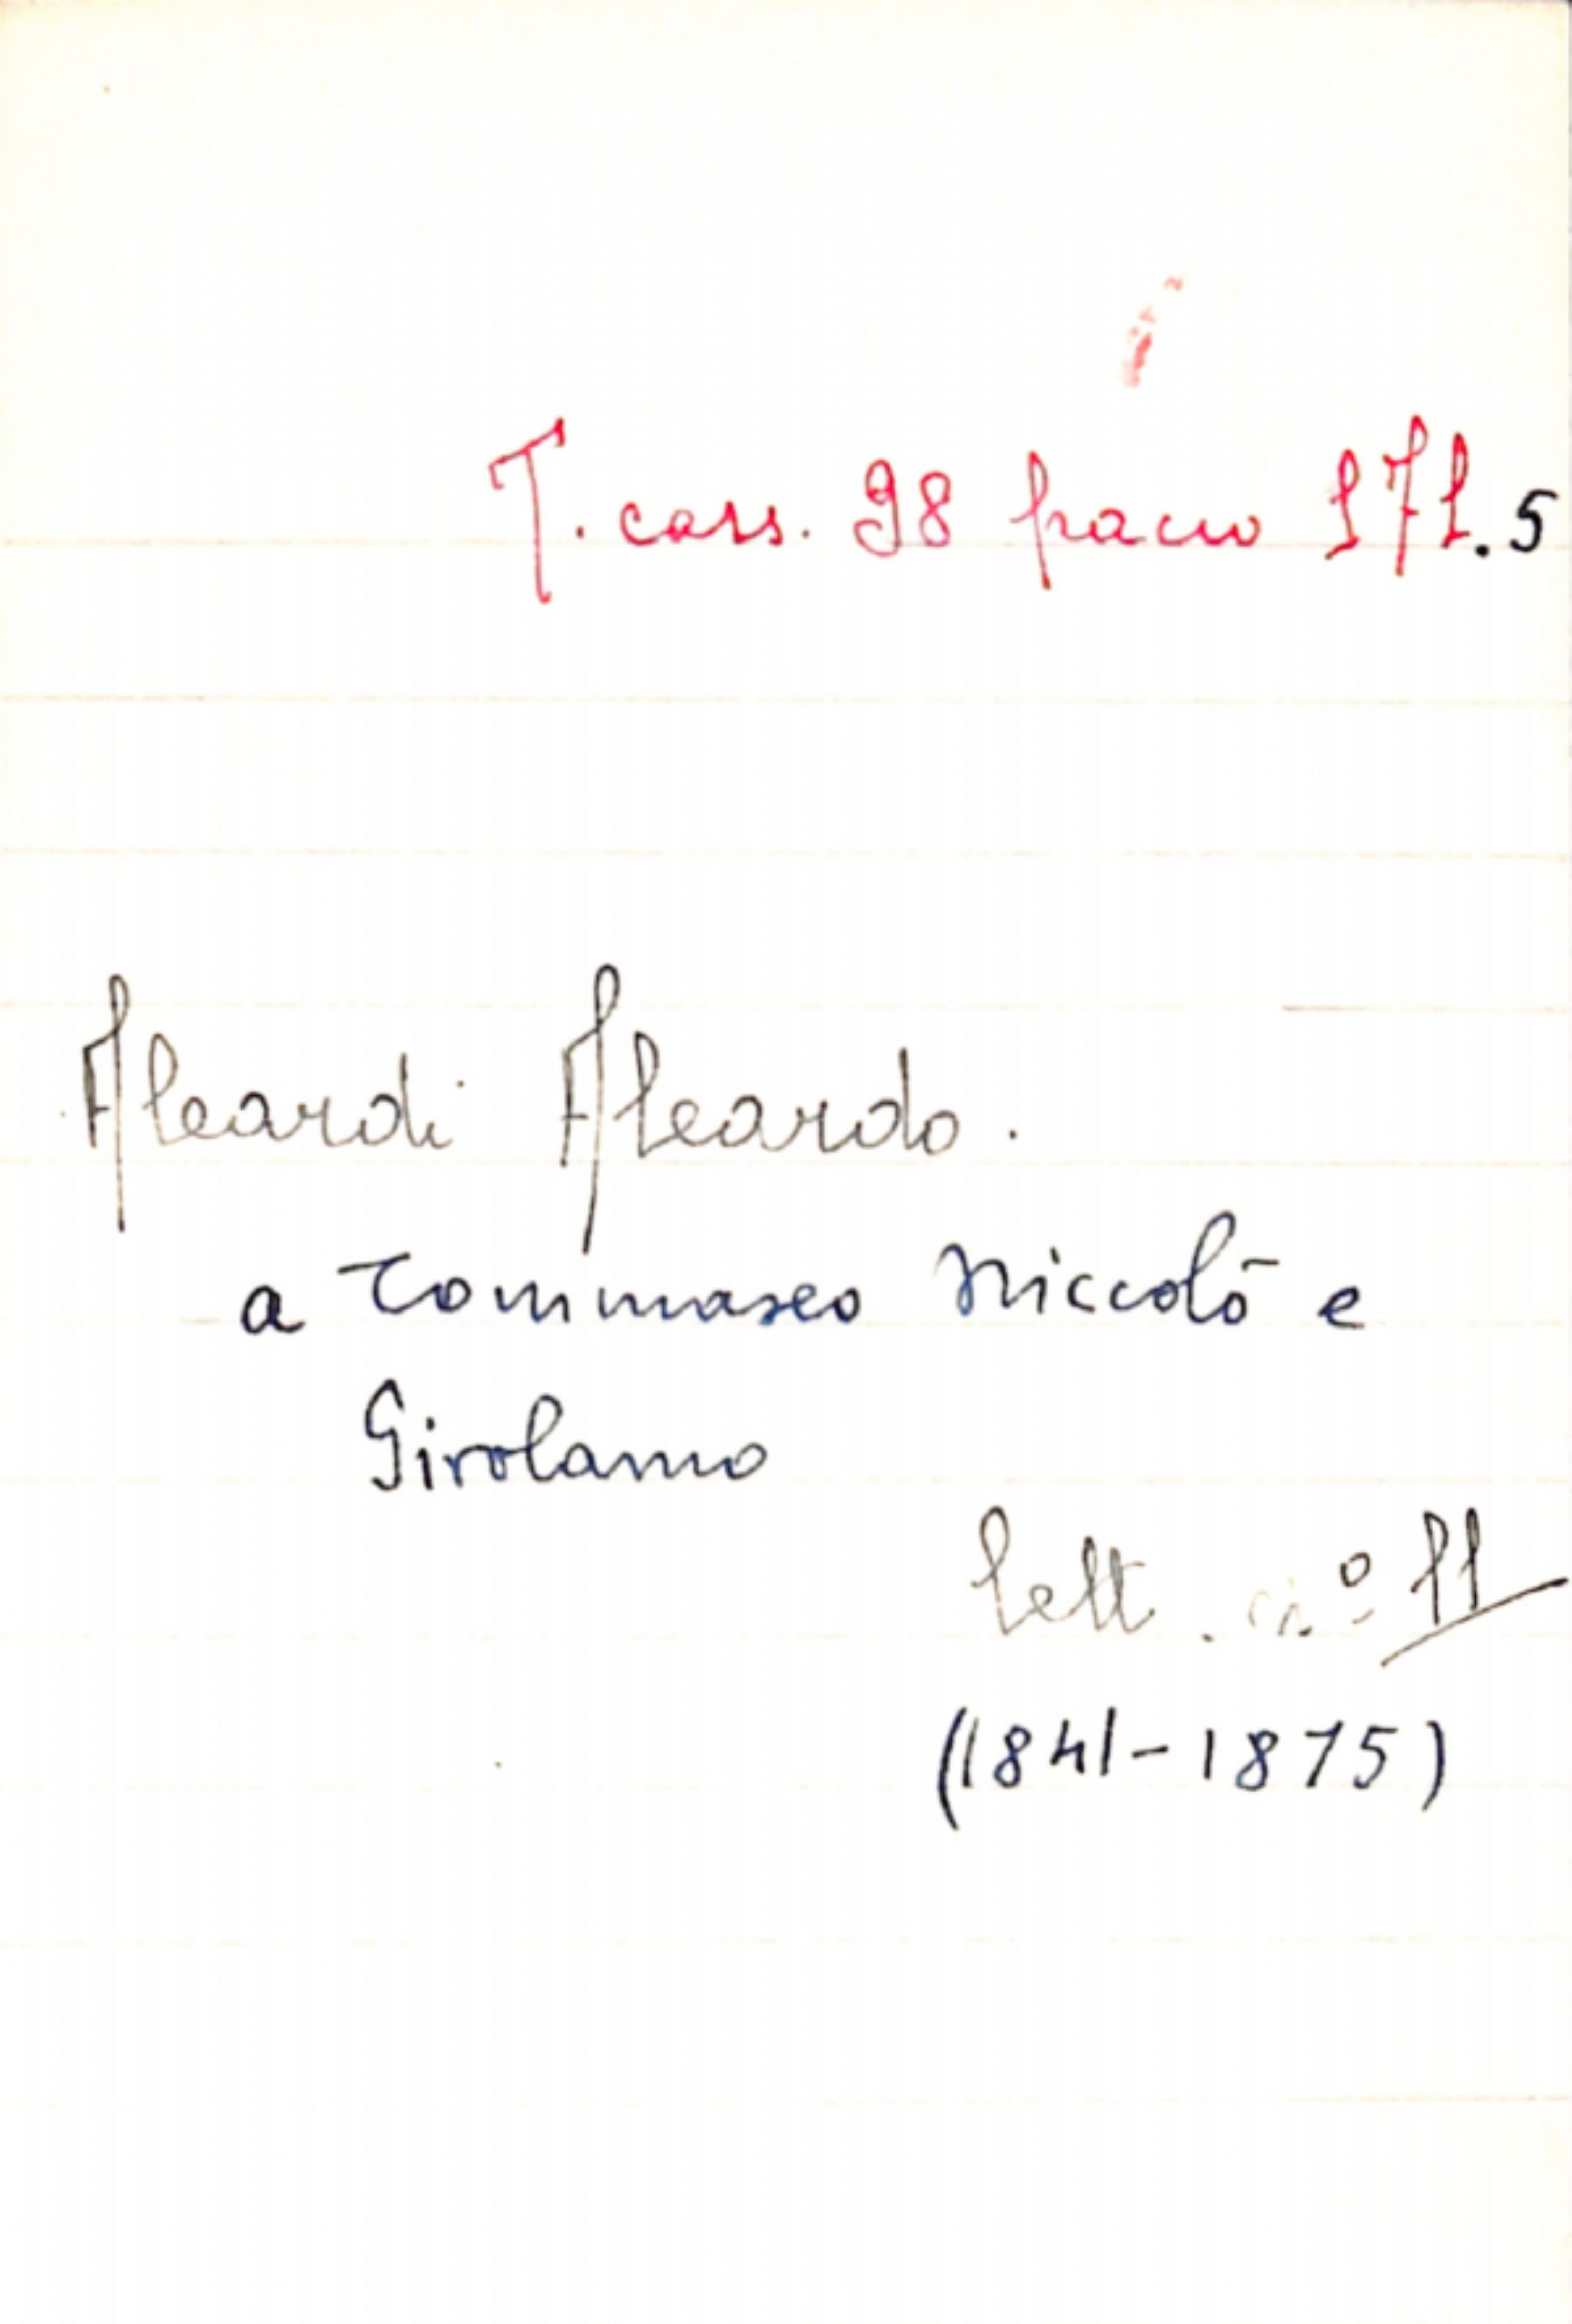 T. cass. 98 pacco 171.5
Aleardi Aleardo.
a Tommaseo Niccolò e
Girolamo
lett. n.º 11
(1841-1875)